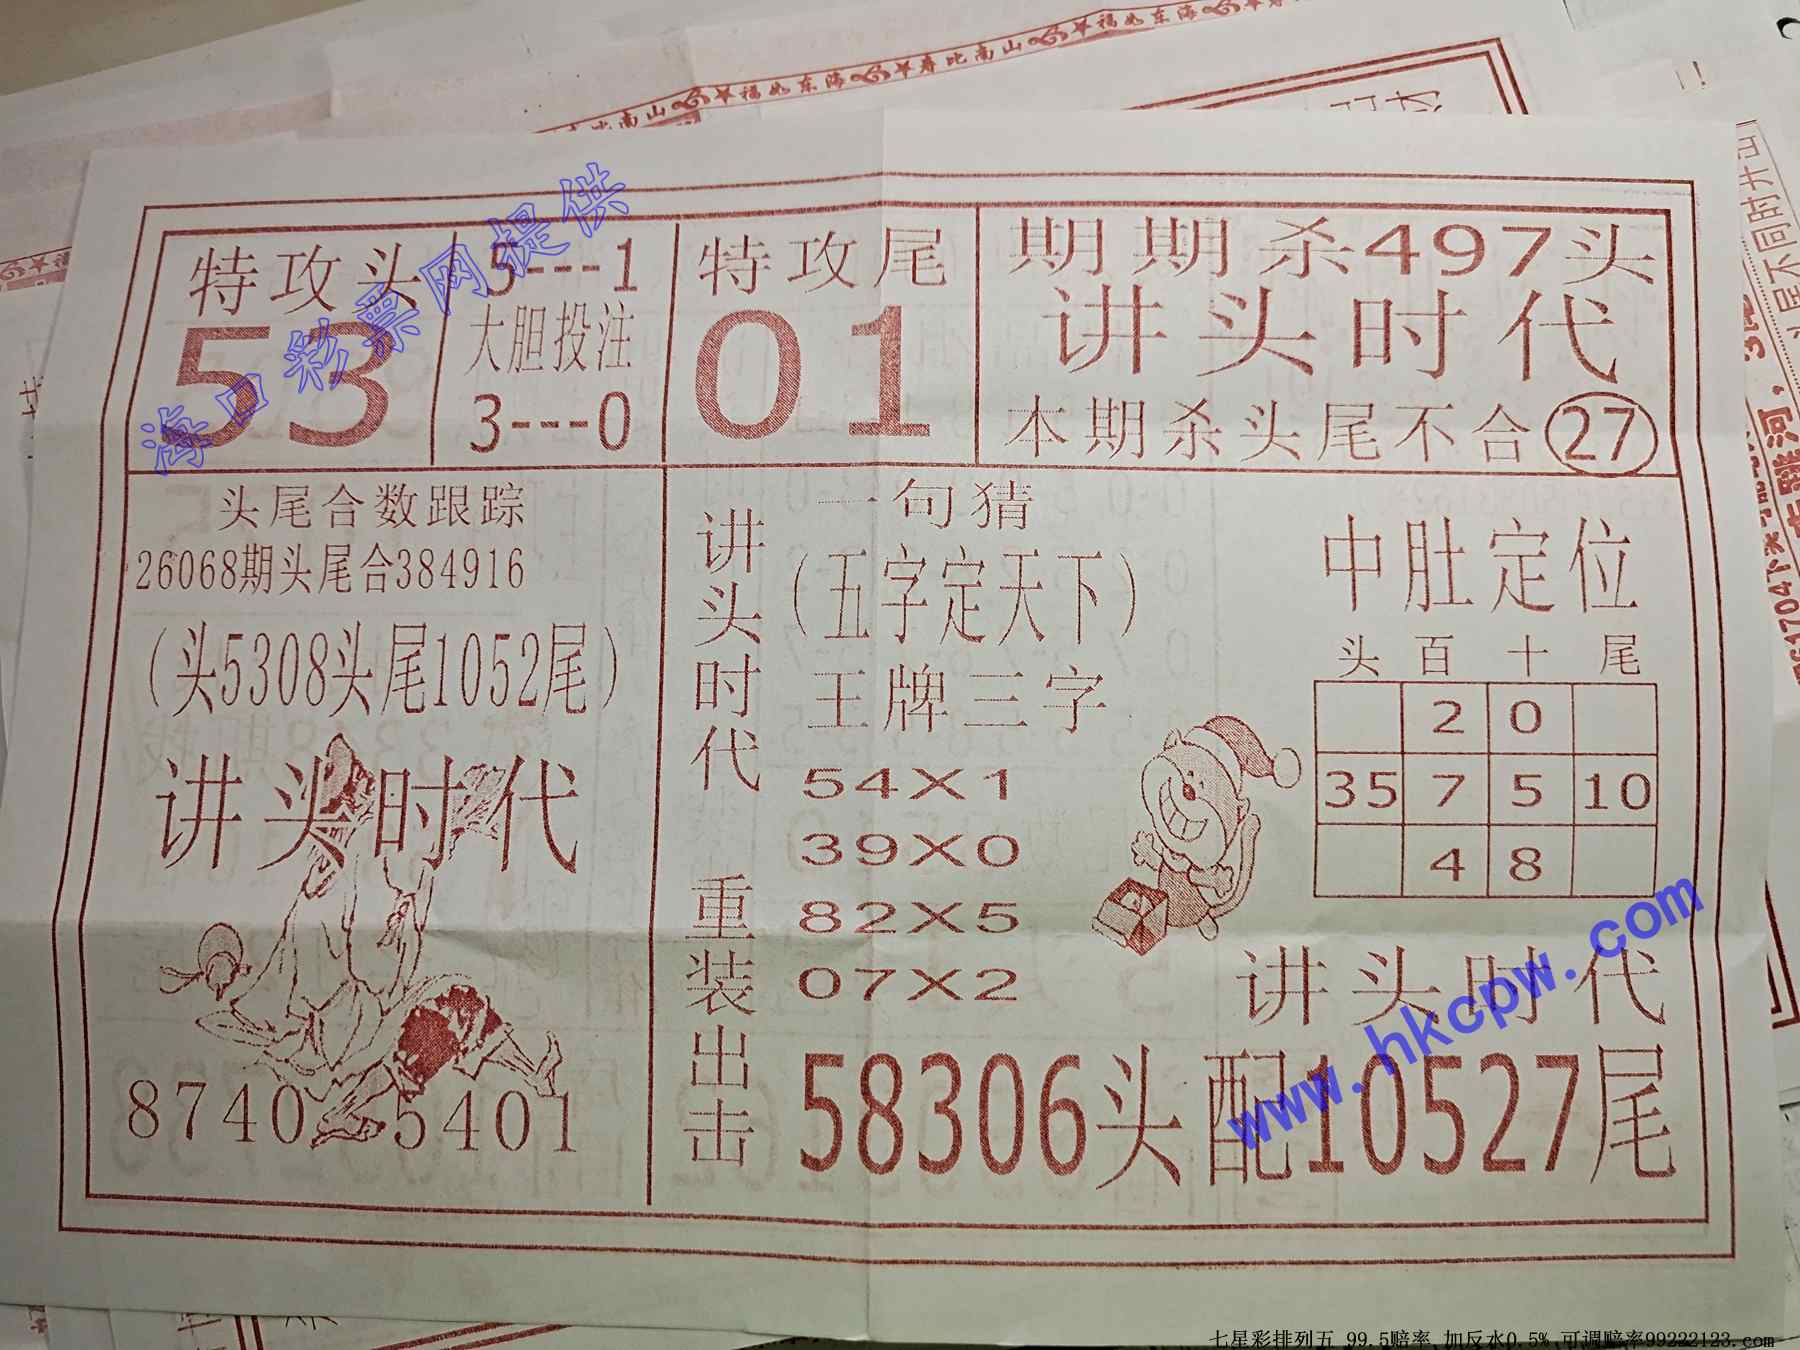 福如东海
寿比南山
福如东海
海口彩票网提供
特攻头
53
5---1
大胆投注
3---0
特攻尾
01
期期杀497头
讲头时代
本期杀头尾不合27
头尾合数跟踪
26068期头尾合384916
(头5308头尾1052尾)
讲头时代
8740 5401
讲头时代
重装出击
一句猜
(五字定天下)
王牌三字
54X1
39X0
82X5
07X2
中肚定位
头 百 十 尾
2 0
35 7 5 10
4 8
讲头时代
58306头配10527尾
www.hkcpw.com
七星彩排列五 99.5赔率,加反水0.5%,可调赔率99222123.com